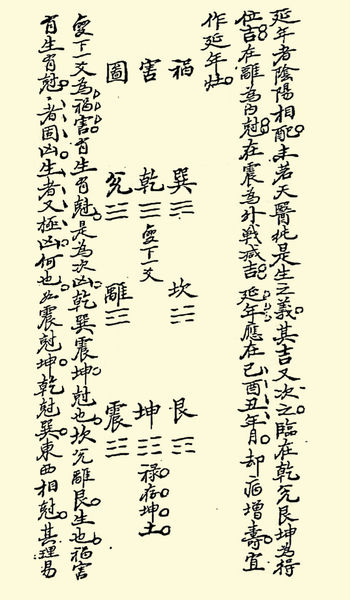 延年者陰陽相配未若天醫純是生之義其吉又次之臨在乾兌艮坤為得
位吉在離為內尅在震為外戰減吉 延年應在巳酉丑年月却病增壽宜
作延年灶
禍 巽 坎 艮
害 乾 變下一爻 坤 祿存坤土
圖 兌 離 震
變下一爻為禍害有生有尅是為次凶乾巽震坤尅也坎兌離艮生也禍害
有生有尅者固凶生者又極凶何也如震尅坤乾尅巽東西相尅其理易